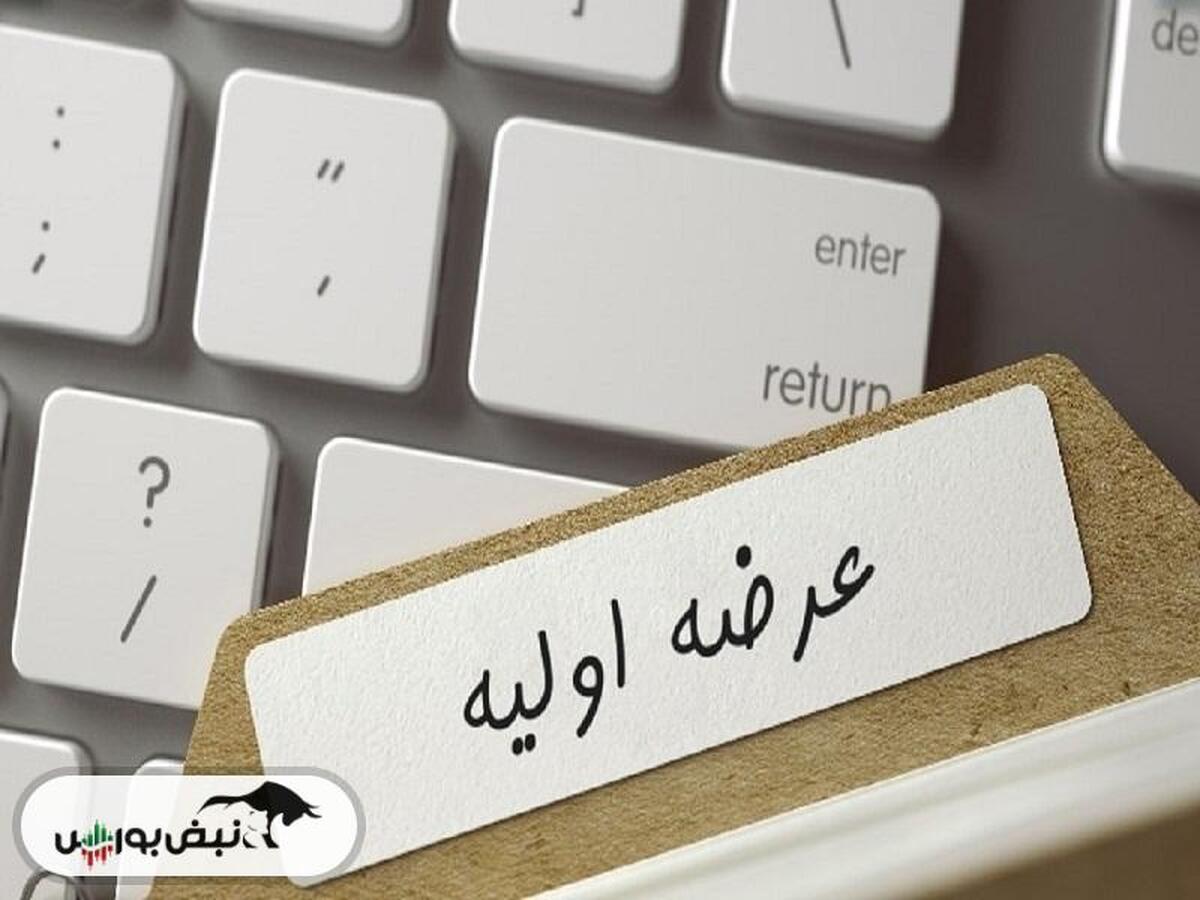 ]
\
de
:
;
"
,
enter
return
?
/
عرضه اولیه
نبض بورس